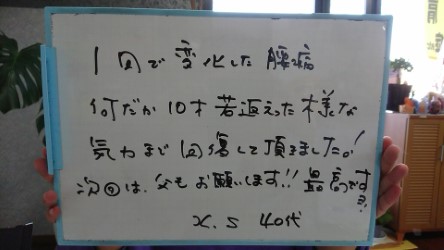 1回で変化した腰痛
何だか10才若返えった様な
気力まで回復して頂きました!
次回は、父もお願いします!! 最高です
X.S 40代